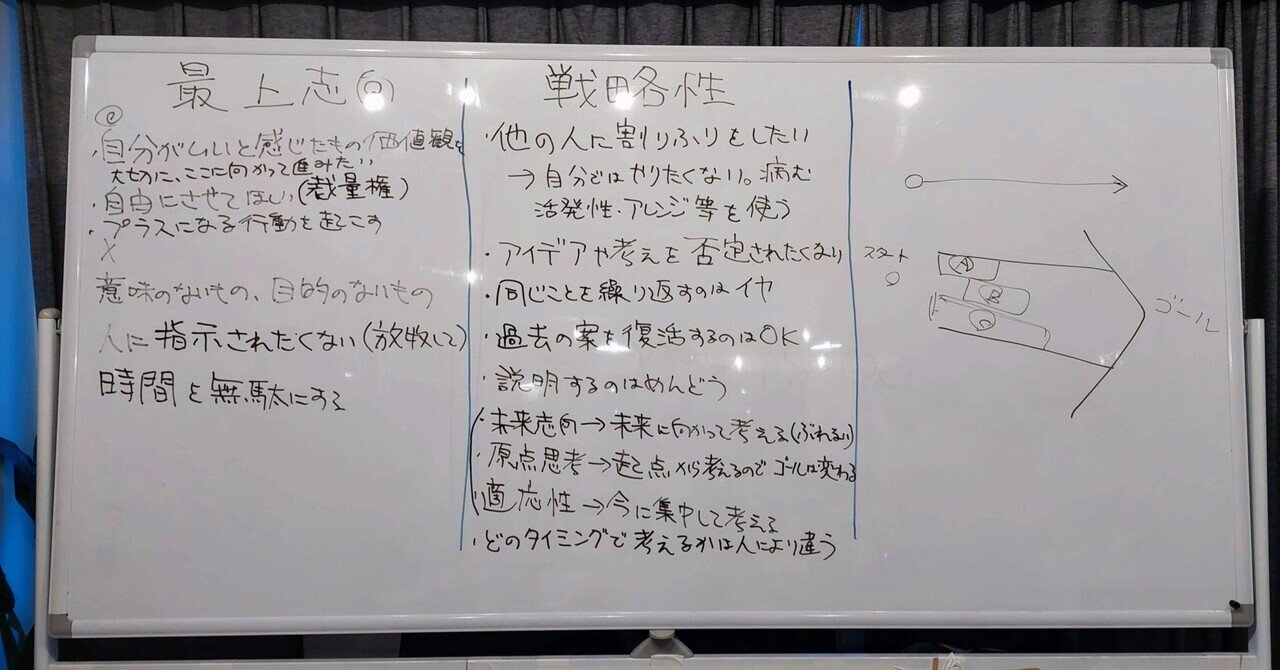 最上志向
◎
・自分がいいと感じたもの価値観を
大切に、ここに向かって進みたい
・自由にさせてほしい(裁量権)
・プラスになる行動を起こす
×
意味のないもの、目的のないもの
人に指示されたくない(放牧して)
時間を無駄にする
戦略各性
・他の人に割りふりをしたい
→自分ではやりたくない。病む
活発性・アレンジ等を使う
・アイデアや考えを否定されたくない
・同じことを繰り返すのはイヤ
・過去の案を復活するのはOK
・説明するのはめんどう
・未来志向→未来に向かって考える(ぶれない)
・原点思考→起点から考えるのでゴールは変わる
・適応性→今に集中して考える
・どのタイミングで考えるかは人により違う
スタート
A
B
C
ゴール